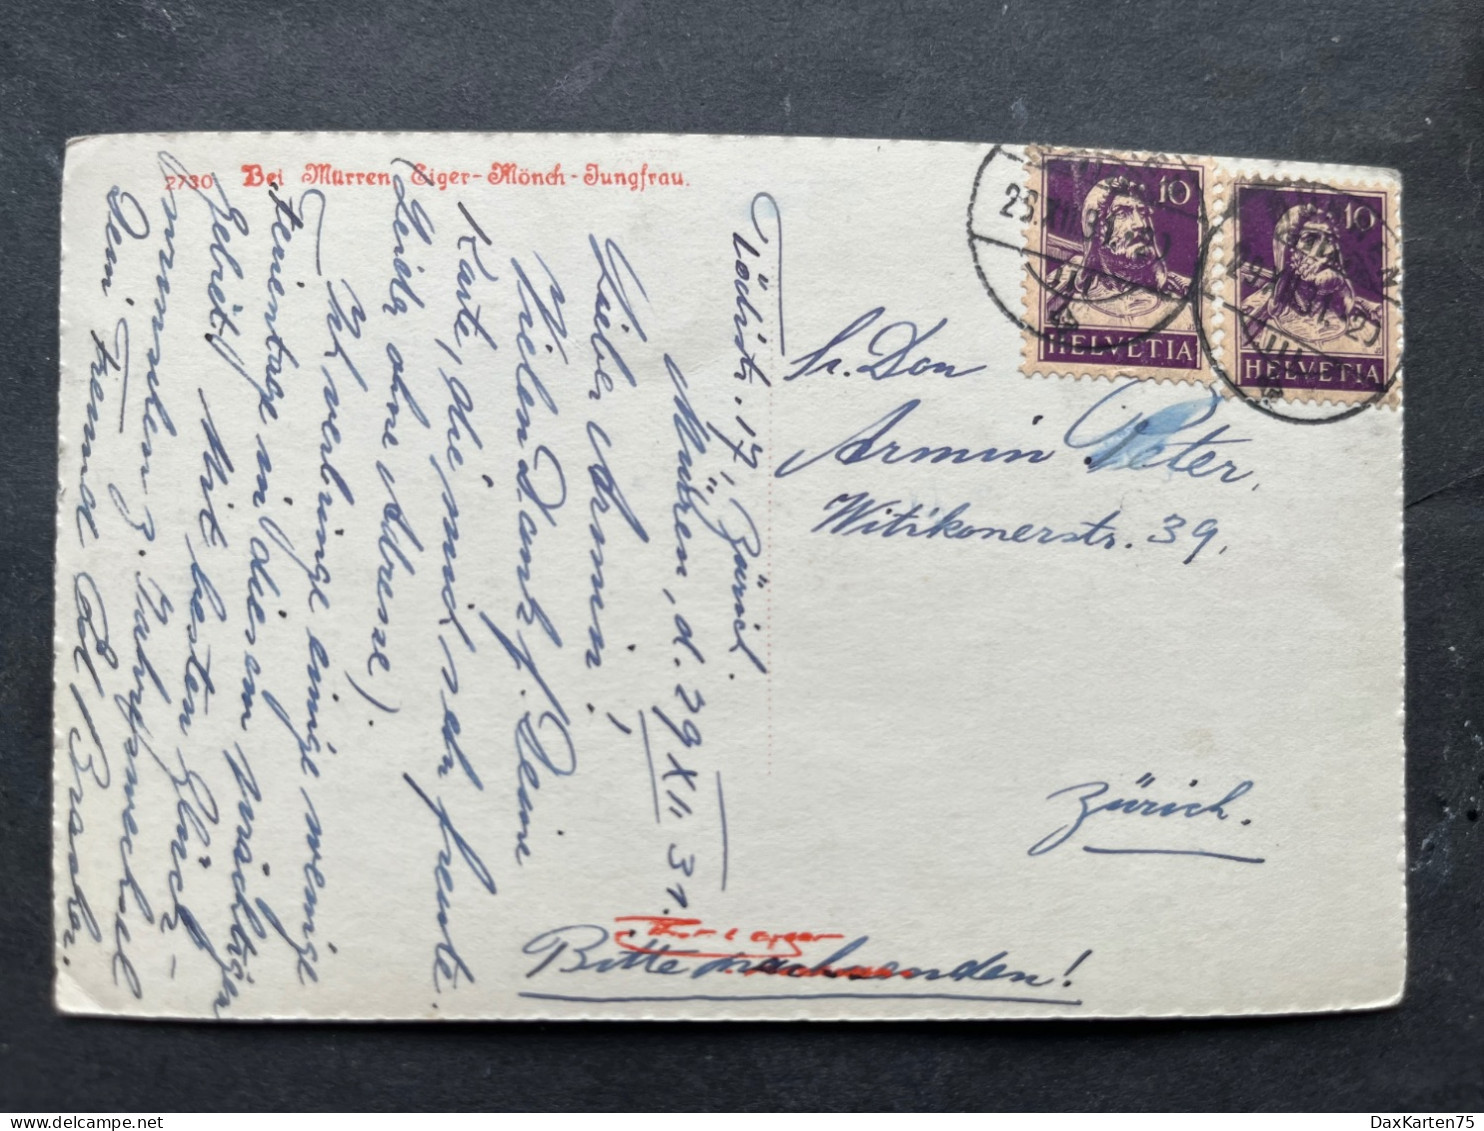 2730 Bei Mürren, Eiger-Mönch-Jungfrau.
Tödistr. 17, Zürich.
Mürren, d. 29 XII. 31.
Lieber Armin!
Vielen Dank f. Deine
Karte, die mich sehr freute.
(Leider ohne Adresse).
Ich verbringe einige wenige
Ferientage in diesem prächtigen
Gebiet. Mit besten Glück-
wünschen z. Jahreswechsel
Dein Freund
Hr. Don
Armin Peter,
Witikonerstr. 39,
Zürich.
Bitte nachsenden!
10
HELVETIA
10
HELVETIA
MÜRREN
29.XII.31
DaxKarten75